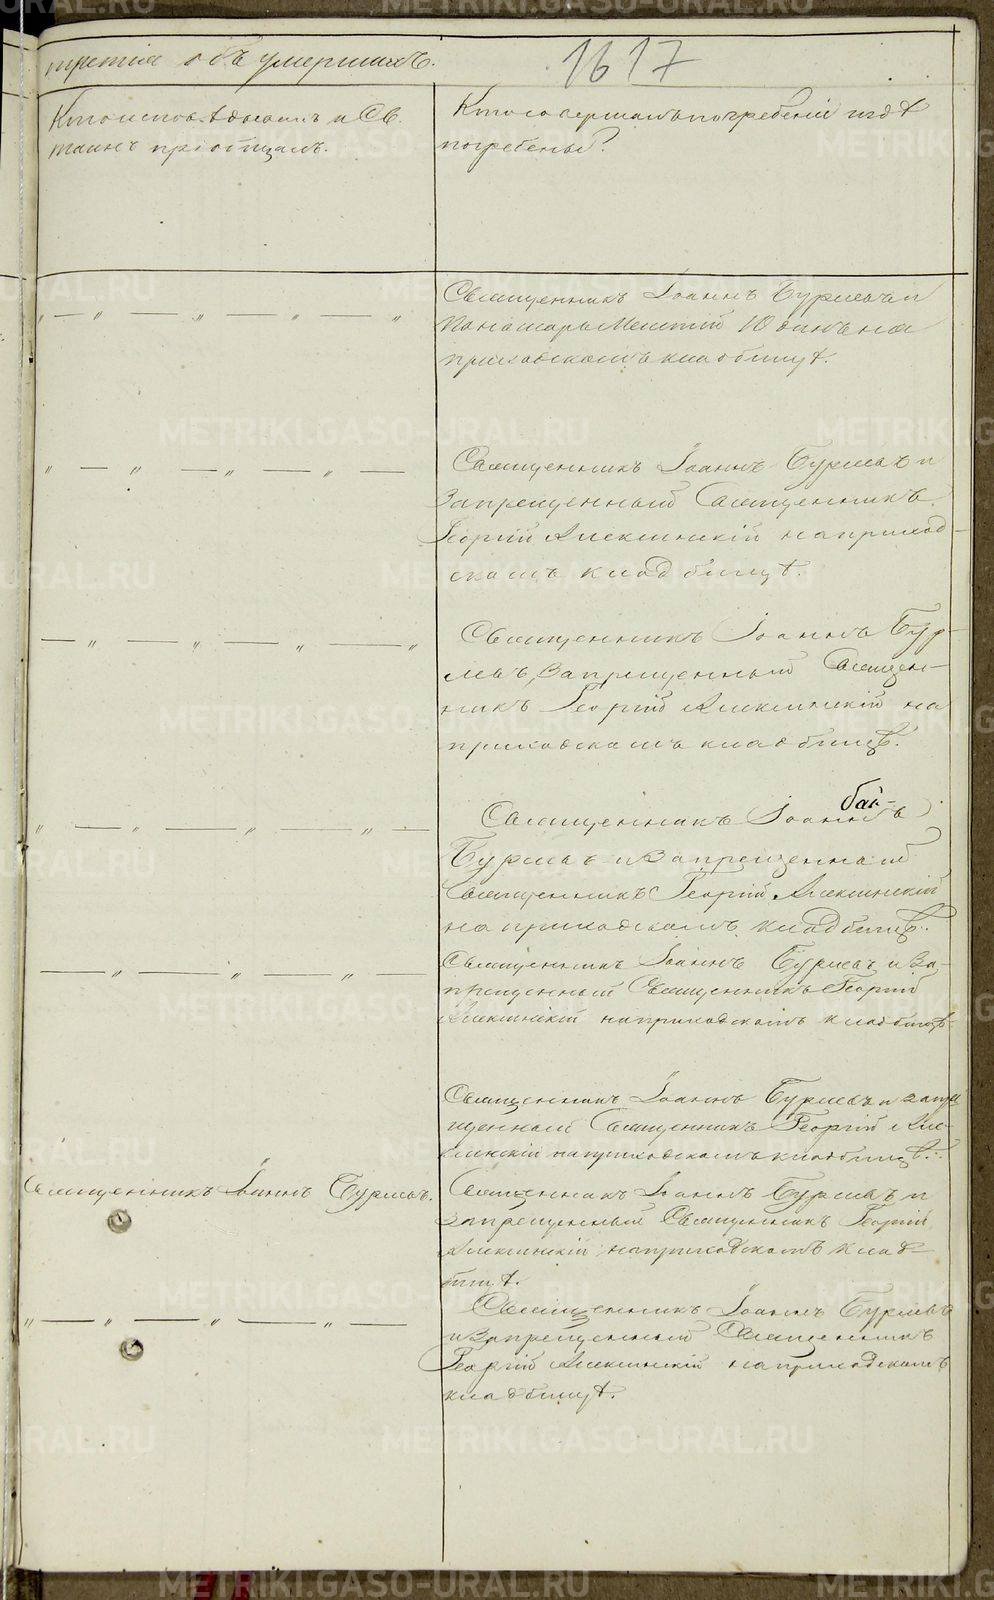 третія объ умершихъ.
1617
Кто исповѣдовалъ и Св.
таинъ пріобщалъ.
Кто совершалъ погребеніе и гдѣ
погребены?
Священникъ Іоаннъ Бурмевъ и
на
приходскомъ кладбищѣ.
Священникъ Іоаннъ Бурмевъ и
Запрещенный Священникъ
Георгій Алекшинскій на приход-
скомъ кладбищѣ.
Священникъ Іоаннъ Бур-
мевъ, Запрещенный Священ-
никъ Георгій Алекшинскій на
приходскомъ кладбищѣ.
Священникъ Іоаннъ
Бурмевъ и Запрещенный
Священникъ Георгій Алекшинскій
на приходскомъ кладбищѣ.
Священникъ Іоаннъ Бурмевъ и За-
прещенный Священникъ Георгій
Алекшинскій на приходскомъ кладбищѣ.
Священникъ Іоаннъ Бурмевъ и запре
щенный Священникъ Георгій Алек-
шинскій на приходскомъ кладбищѣ.
Священникъ Іоаннъ Бурмевъ.
Священникъ Іоаннъ Бурмевъ и
запрещенный Священникъ Георгій
Алекшинскій на приходскомъ клад-
бищѣ.
Священникъ Іоаннъ Бурмевъ
и Запрещенный Священникъ
Георгій Алекшинскій на приходскомъ
кладбищѣ.
METRIKI.GASO-URAL.RU